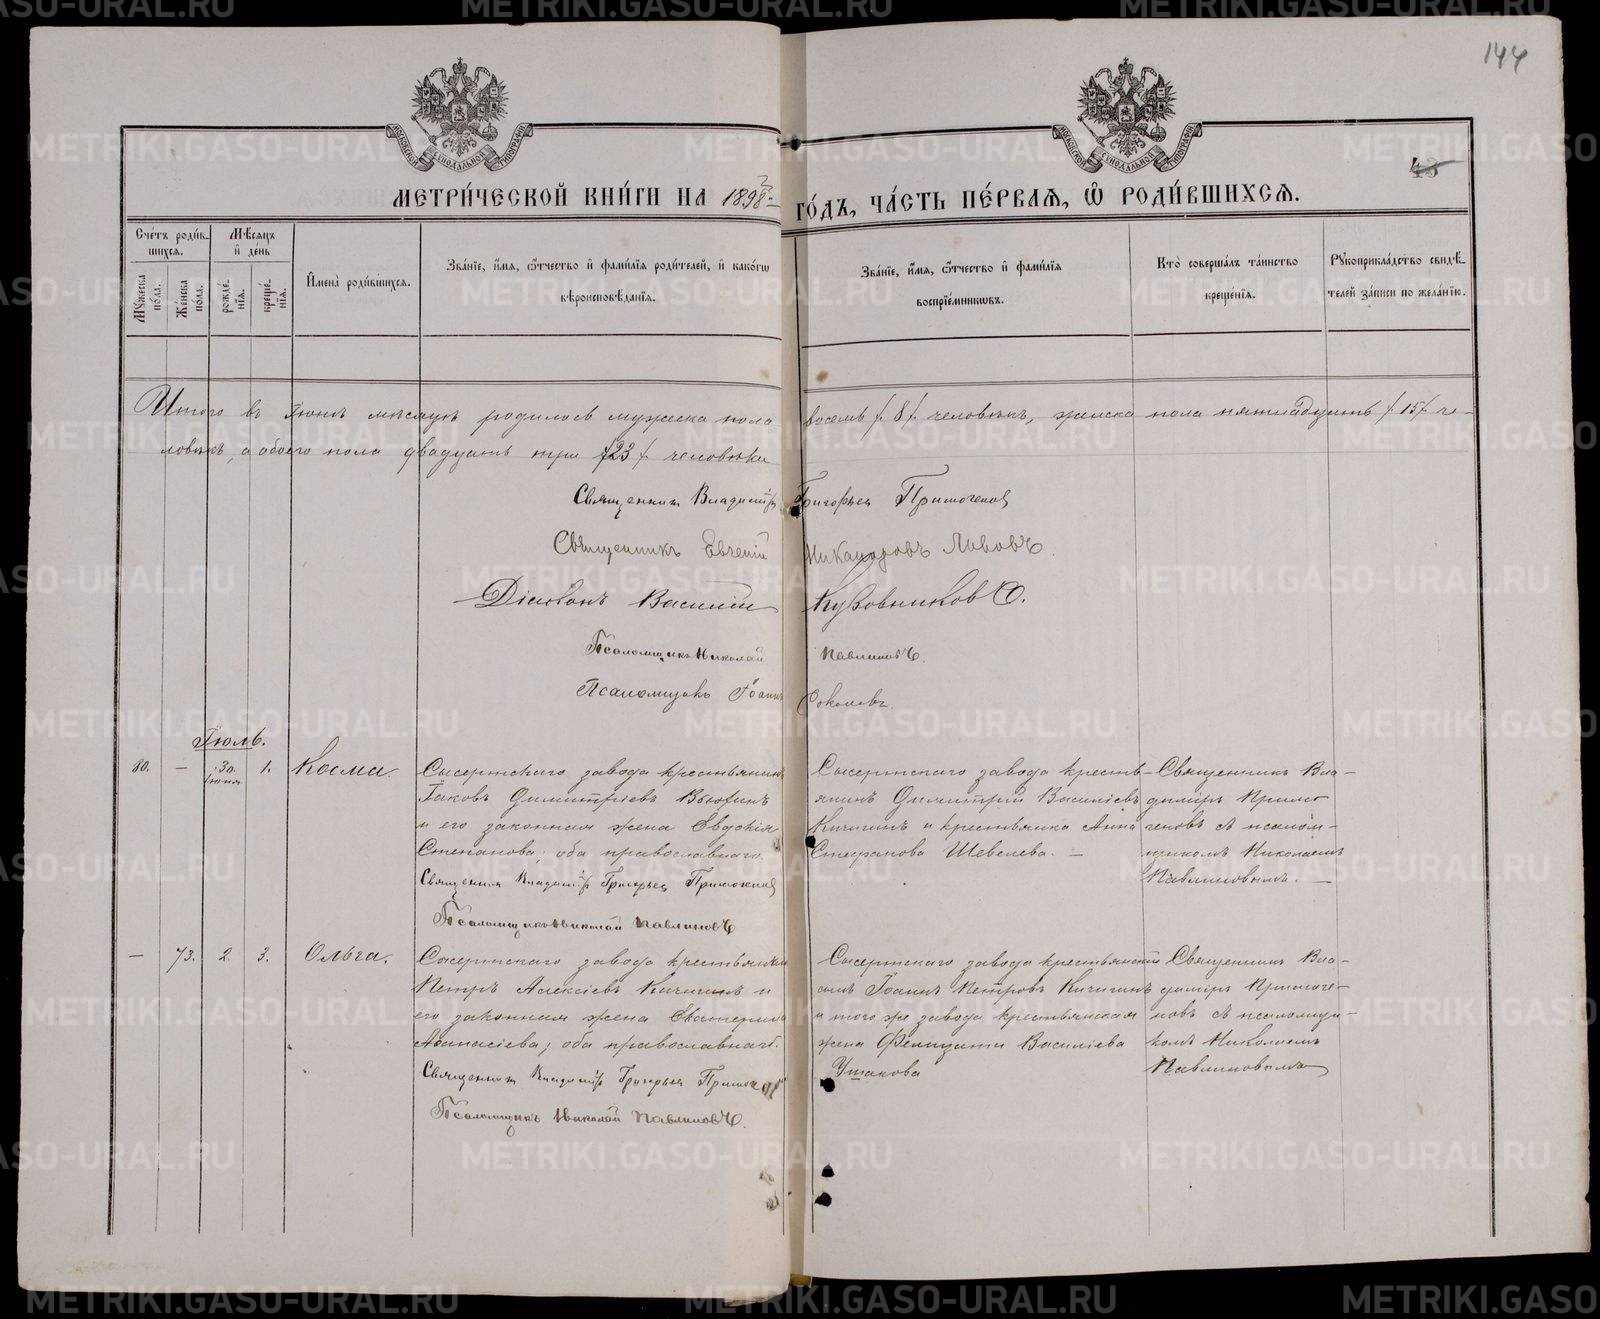 144
43
МЕТРИ́ЧЕСКОЙ КНИ́ГИ НА 1898й ГО́ДЪ, ЧА́СТЬ ПЕ́РВАЯ, Ѽ РОДИ́ВШИХСЯ.
Сче́тъ роди́вшихся.
Му́жеска по́ла.
Же́нска по́ла.
Мѣ́сяцъ и҆ де́нь
рожде́нїя.
креще́нїя.
И҆мена̀ роди́вшихся.
Зва́нїе, и҆́мя, ѻ҆́тчество и҆ фами́лїя роди́телей, и҆ како́гѡ
вѣроисповѣ́данїя.
Зва́нїе, и҆́мя, ѻ҆́тчество и҆ фами́лїя
воспрїе́мникѡвъ.
Кто̀ соверша́лъ та́инство
креще́нїя.
Рꙋкоприкла́дство свидѣ́-
телей за́писи по жела́нїю.
Итого въ Іюнѣ мѣсяцѣ родилось мужеска пола восемь /8/ человѣкъ, женска пола пятнадцать /15/ че-
ловѣкъ, а обоего пола двадцать три /23/ человѣка
Священникъ Владиміръ Григорьевъ Примогеновъ
Священникъ Евгеній Никаноровъ Львовъ.
Діаконъ Василій Кубовниковъ.
Псаломщикъ Николай Павлиновъ.
Псаломщикъ Іоаннъ Соколовъ
Іюль.
80. — 30. Іюня 1. Косма.
Сысертскаго завода крестьянинъ
Іаковъ Димитріевъ Вьюхинъ
и его законная жена Евдокія
Степанова; оба православнаго.
Священникъ Владиміръ Григорьевъ Примогеновъ
Псаломщикъ Николай Павлиновъ
Сысертскаго завода кресть-
янинъ Димитрій Василіевъ
Кичигинъ и крестьянка Анна
Стефанова Шевелева. —
Священникъ Вла-
диміръ Примо-
геновъ съ псалом-
щикомъ Николаемъ
Павлиновымъ. —
— 73. 2. 3. Ольга.
Сысертскаго завода крестьянинъ
Петръ Алексіевъ Кичигинъ и
его законная жена Екатерина
Аѳанасіева; оба православнаго.
Священникъ Владиміръ Григорьевъ Примогеновъ
Псаломщикъ Николай Павлиновъ.
Сысертскаго завода крестьянскій
сынъ Іоаннъ Петровъ Кичигинъ
и того же завода крестьянская
жена Фелицата Василіева
Ушакова
Священникъ Вла-
диміръ Примоге-
новъ съ псаломщи-
комъ Николаемъ
Павлиновымъ
METRIKI.GASO-URAL.RU